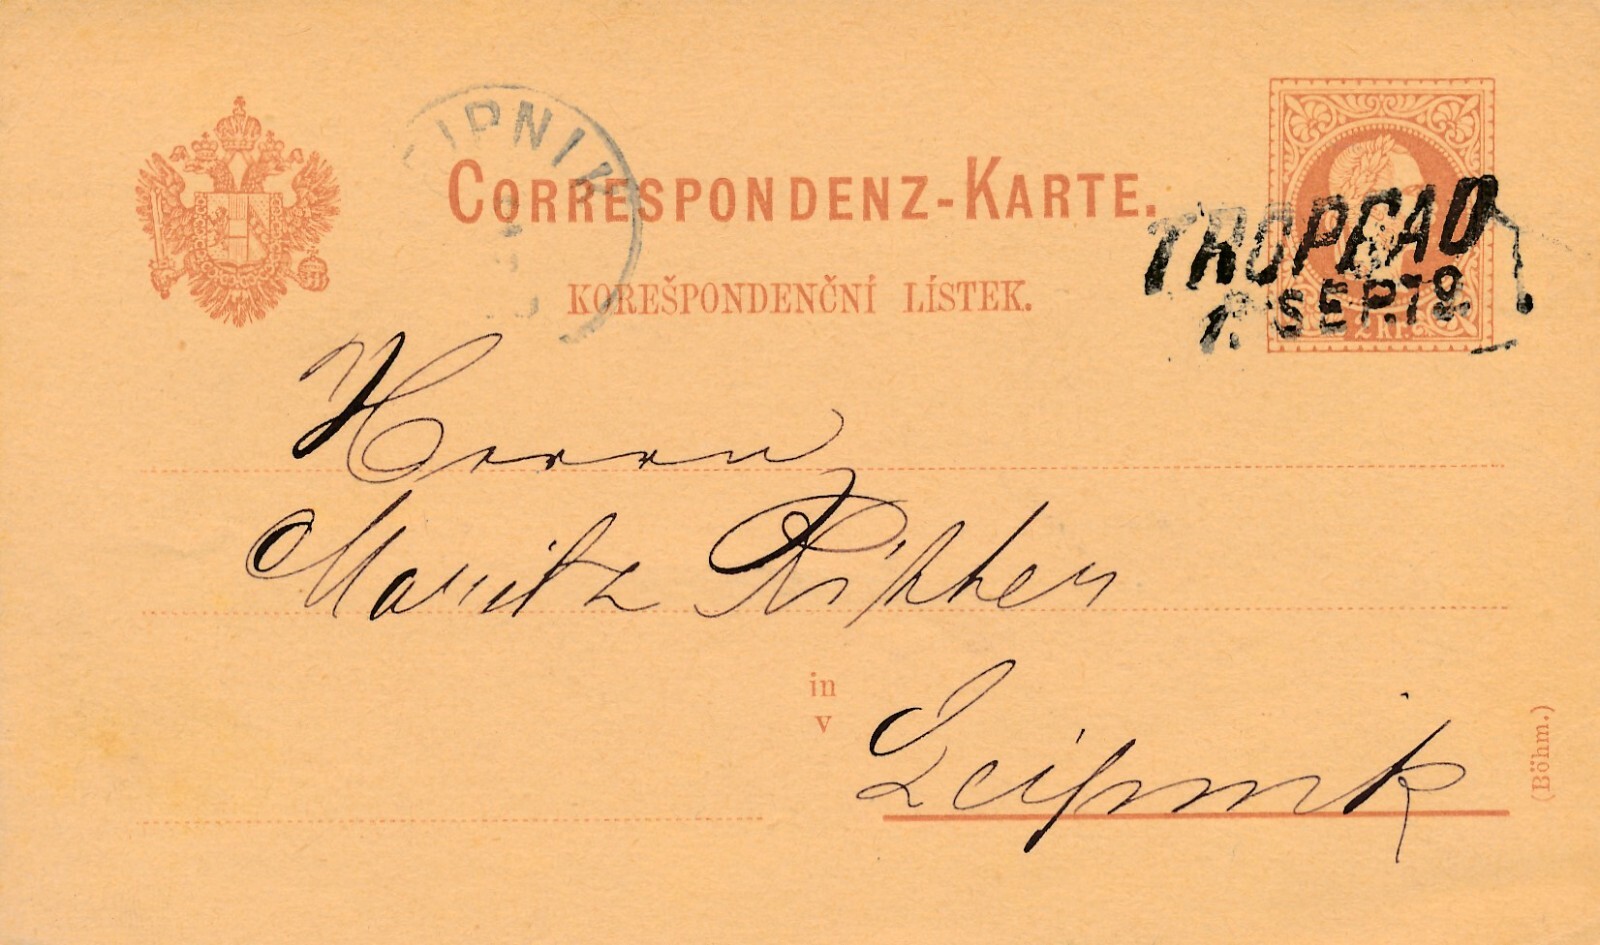 CORRESPONDENZ-KARTE.
KOREŠPONDENČNÍ LÍSTEK.
TROPPAU
SEP.79
2 kr.
Herrn
Moritz
in
v
Leipnik
(Böhm.)